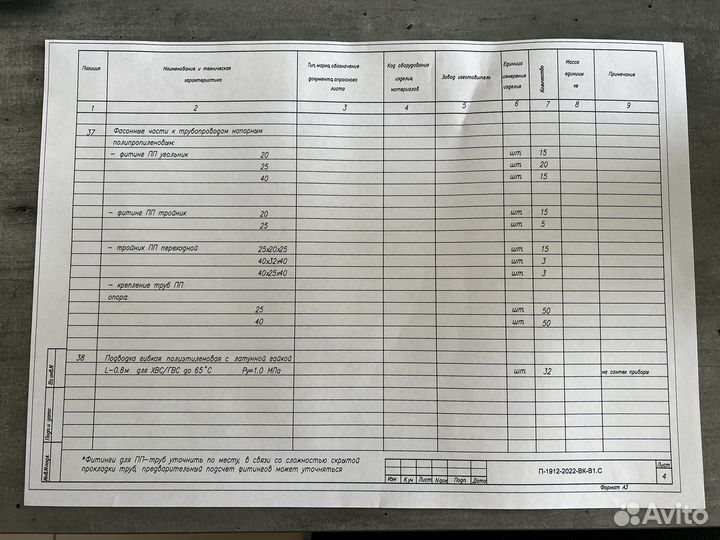 Позиция Наименование и техническая характеристика Тип, марка, обозначение документа, опросного листа Код оборудования изделия, материалов Завод изготовитель Единица измерения изделия Количество Масса единицы кг Примечание
1 2 3 4 5 6 7 8 9
37 Фасонные части к трубопроводам напорным
полипропиленовым:
- фитинг ПП угольник 20 шт. 15
25 шт. 20
40 шт. 15
- фитинг ПП тройник 20 шт. 15
25 шт. 5
- тройник ПП переходной 25х20х25 шт. 15
40х32х40 шт. 3
40х25х40 шт. 3
- крепление труб ПП
опора:
25 шт. 50
40 шт. 50
38 Подводка гибкая полиэтиленовая с латунной гайкой
L-0.8м для ХВС/ГВС до 65°С Ру=1.0 МПа шт. 32 на сантех приборы
*Фитинги для ПП-труб уточнить по месту, в связи со сложностью скрытой
прокладки труб, предварительный подсчет фитингов может уточняться
Подп. и дата
Изм Куч Лист Nдок Подп. Дата
П-1912-2022-ВК-В1.С
Лист
4
Формат А3
Avito